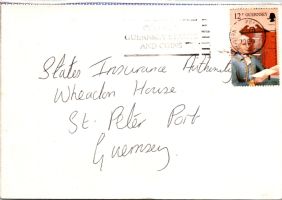 GUERNSEY
AND COINS
12p GUERNSEY
States Insurance Authority
Wheadon House
St. Peter Port
Guernsey.